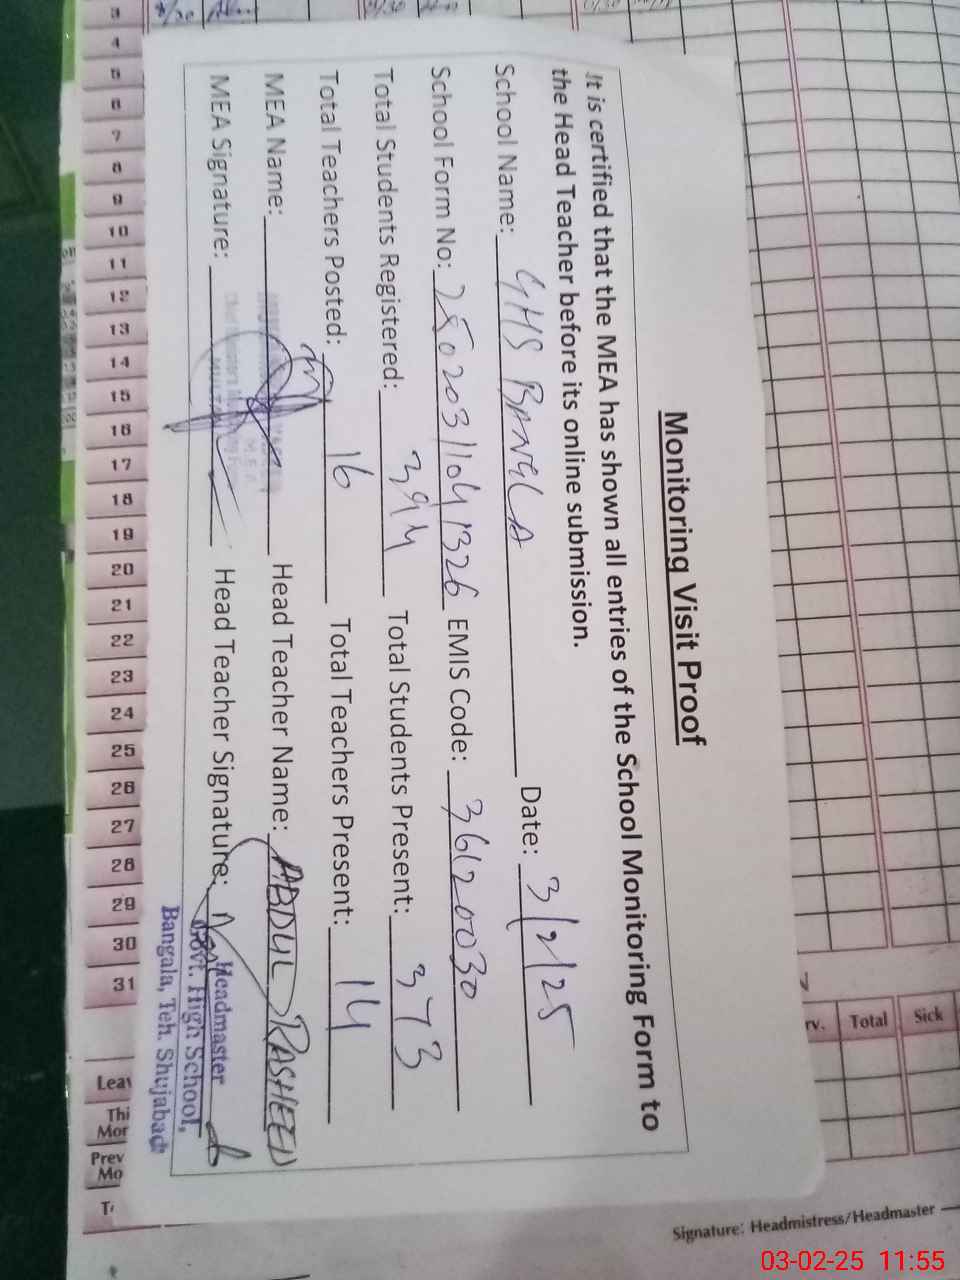 Monitoring Visit Proof
It is certified that the MEA has shown all entries of the School Monitoring Form to
the Head Teacher before its online submission.
School Name: GHS BANGLA Date: 3/2/25
School Form No: EMIS Code: 36120030
Total Students Registered: 394 Total Students Present: 373
Total Teachers Posted: 16 Total Teachers Present: 14
MEA Name: Head Teacher Name: ABDUL RASHEED
MEA Signature: Head Teacher Signature:
Headmaster
Govt. High School,
Bangala, Teh. Shujabad
3
4
5
6
7
8
9
10
11
12
13
14
15
16
17
18
19
20
21
22
23
24
25
26
27
28
29
30
31
Total
Sick
Signature: Headmistress/Headmaster
03-02-25 11:55